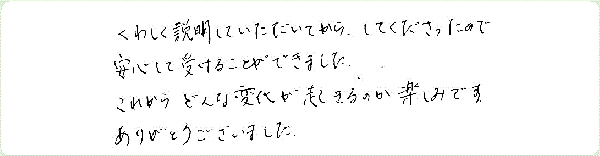 くわしく説明していただいてから、してくださったので
安心して受けることができました。
これからどんな変化が起きるのか楽しみです
ありがとうございました。